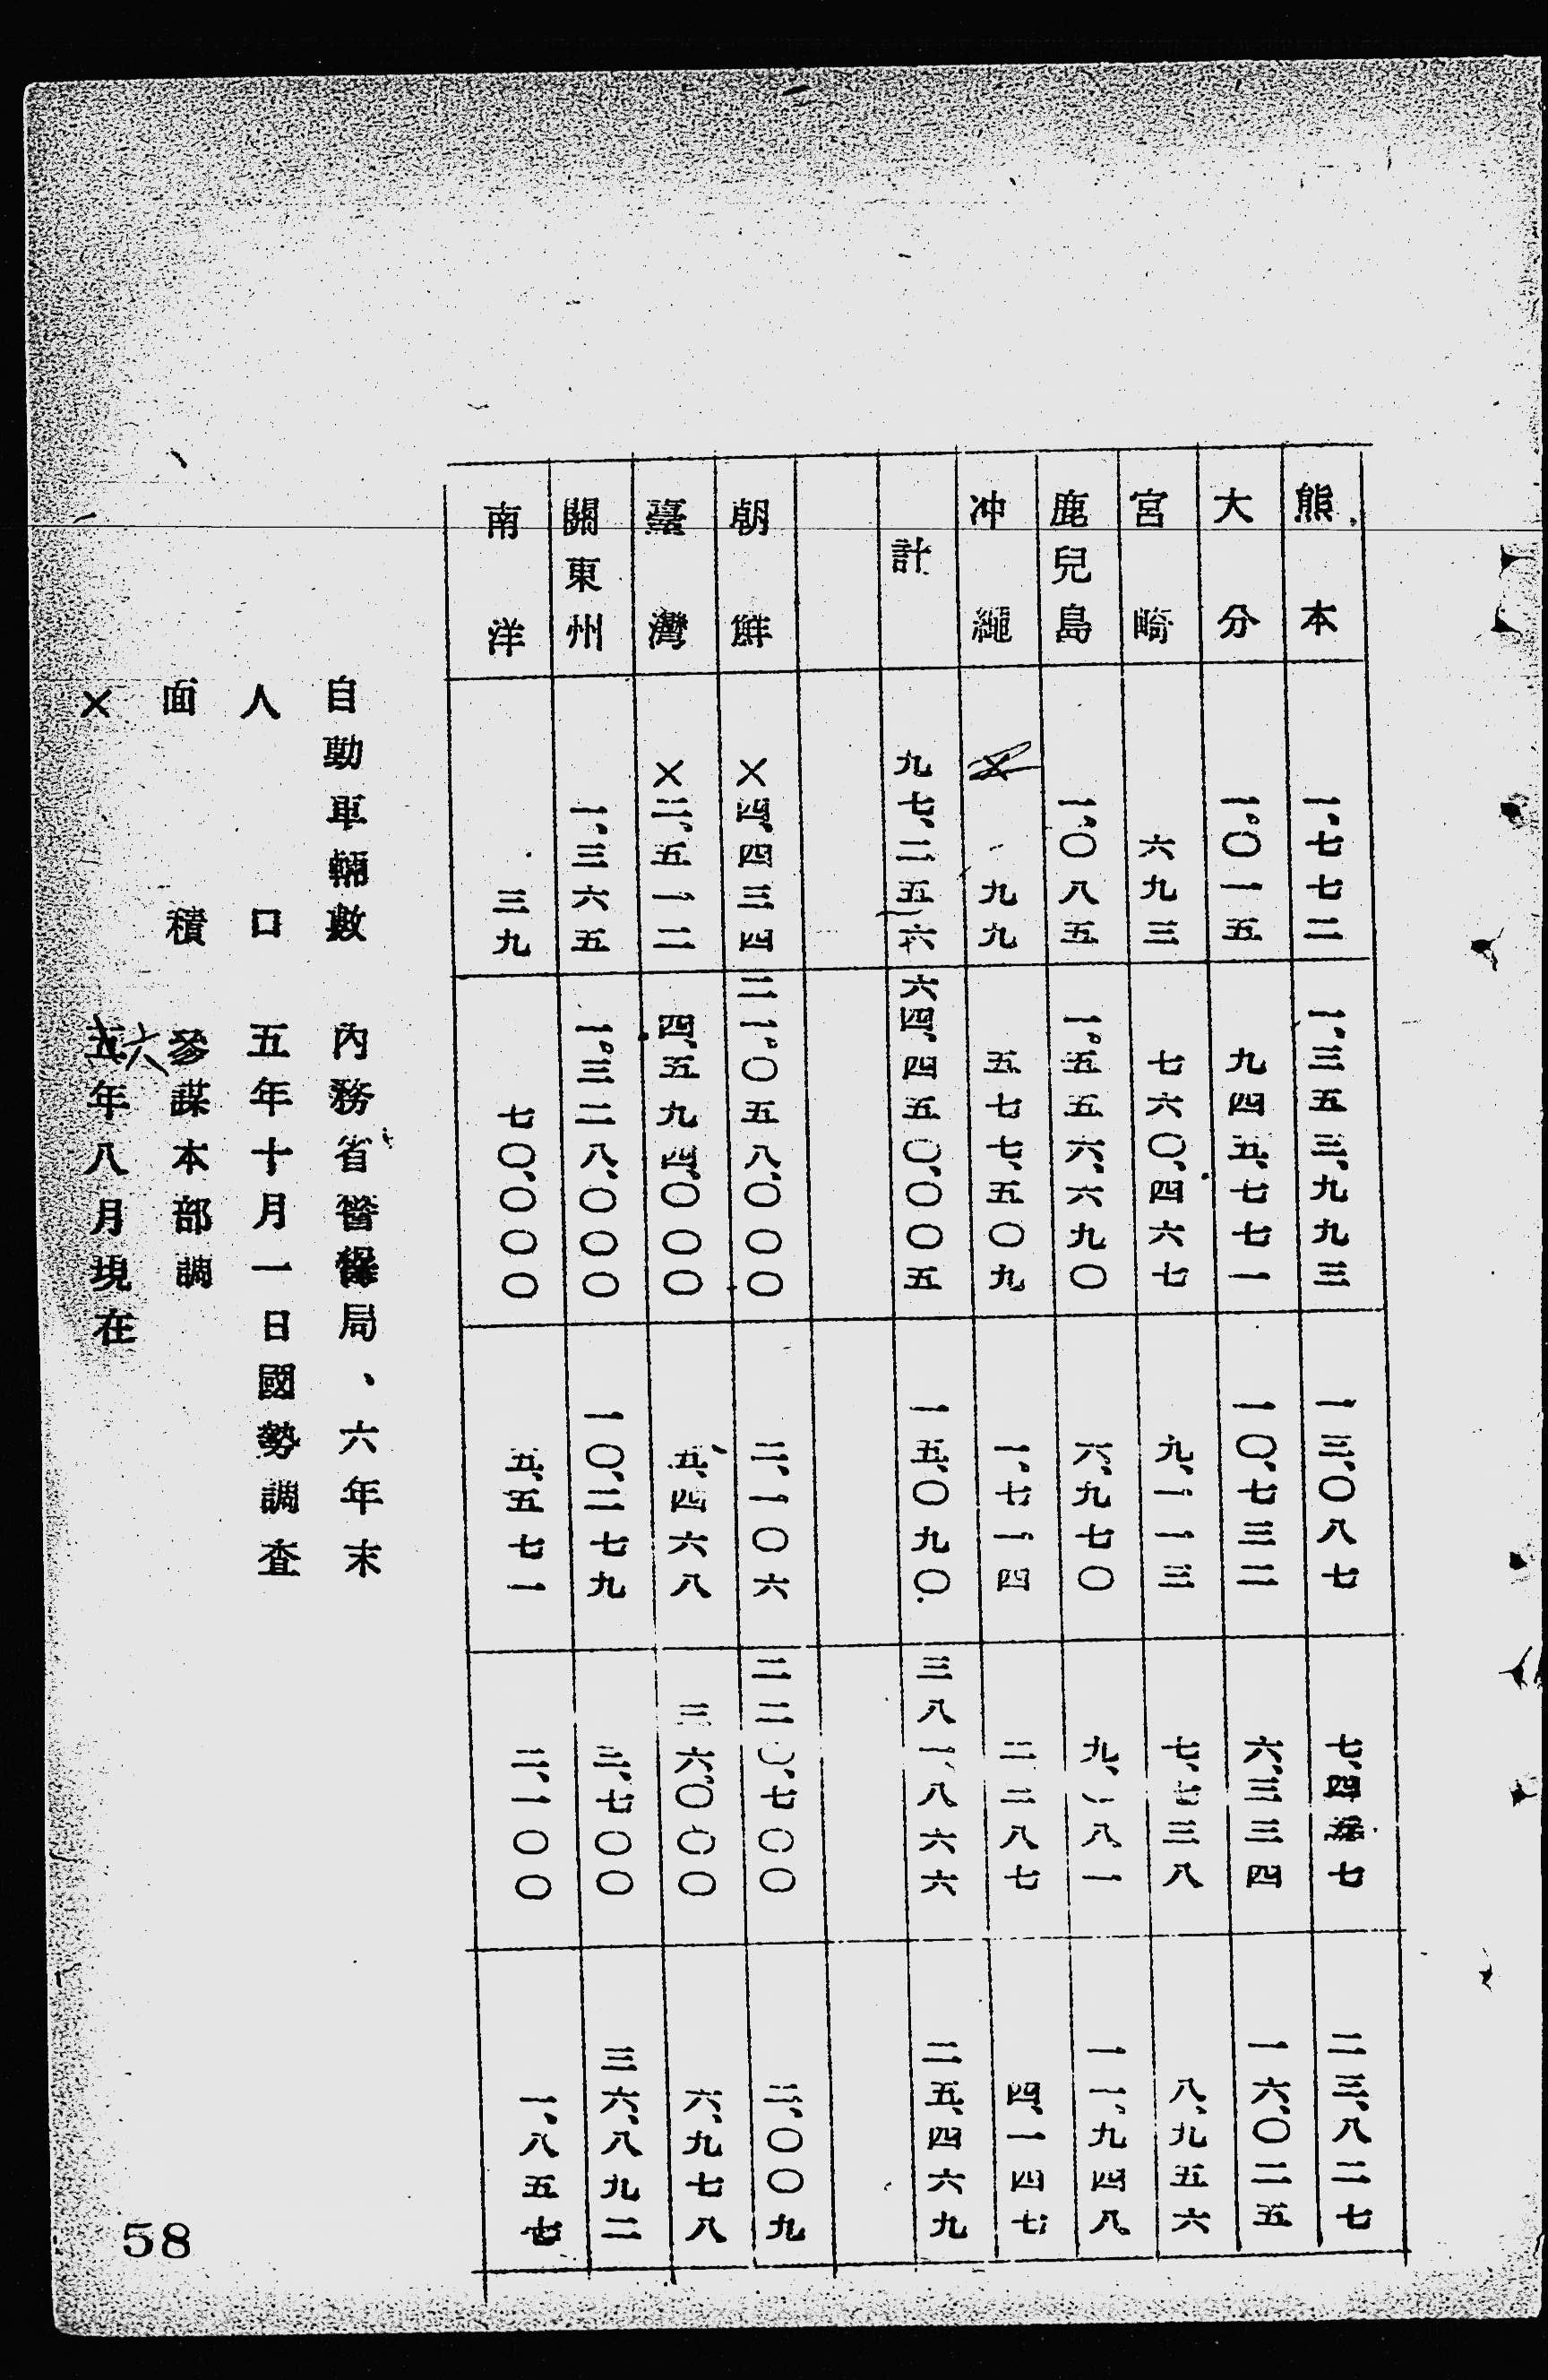 熊本 一、七七二 一、三五三、九九三 一三、〇八七 七、四 七 二三、八二七
大分 一、〇一五 九四五、七七一 一〇、七三二 六、三三四 一六、〇二五
宮崎 六九三 七六〇、四六七 九、一一三 七、七三八 八、九五六
鹿兒島 一、〇八五 一、五五六、六九〇 六、九七〇 九、一八一 一一、九四八
冲繩 九九 五七七、五〇九 一、七一四 二二八七 四、一四七
計 九七、二五六 六四、四五〇、〇〇五 一五、〇九〇 三八一、八六六 二五、四六九
朝鮮 ×四、四三四 二一、〇五八、〇〇〇 二、一〇六 二二〇、七〇〇 二、〇〇九
臺灣 ×二、五一二 四、五九四、〇〇〇 五、四六八 三六、〇〇〇 六、九七八
關東州 一、三六五 一、三二八、〇〇〇 一〇、二七九 三、七〇〇 三六、八九二
南洋 三九 七〇、〇〇〇 五、五七一 二、一〇〇 一、八五七
自動車輛數 內務省警保局、六年末
人口 五年十月一日國勢調査
面積 參謀本部調
× 六年八月現在
58